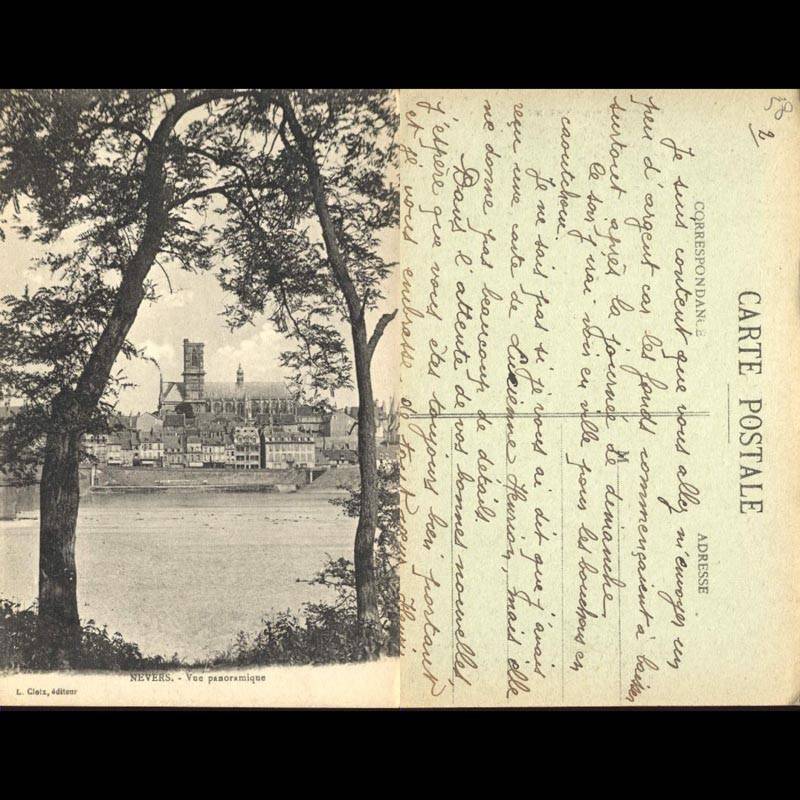 NEVERS. - Vue panoramique
L. Cloix, éditeur
CARTE POSTALE
CORRESPONDANCE
ADRESSE
M
2
Je suis content que vous allez m'envoyer un
peu d'argent car les fonds commençaient à baisser
surtout après la journée de dimanche.
Ce soir j'irai voir en ville pour les bouchons en
caoutchouc.
Je ne sais pas si je vous ai dit que j'avais
reçu une carte de Lucienne Henrion, mais elle
ne donne pas beaucoup de détails.
Dans l'attente de vos bonnes nouvelles,
j'espère que vous êtes toujours bien portant
et je vous embrasse